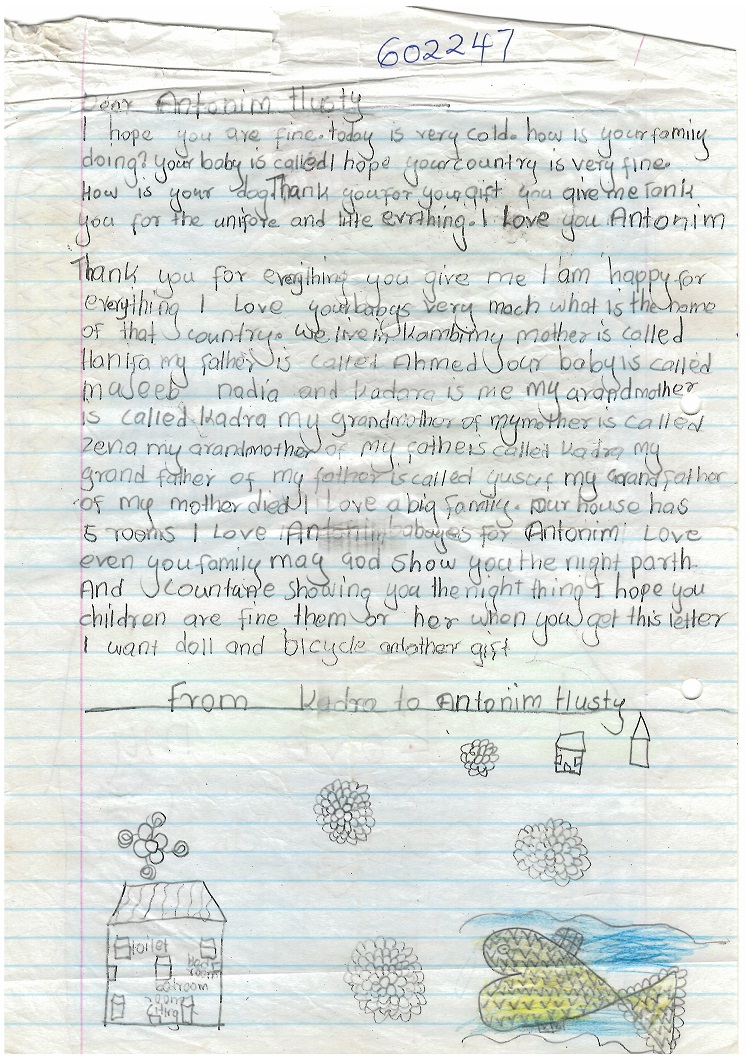 602247
Dear Antonim Husty
I hope you are fine. today is very cold. how is your family
doing? your baby is called I hope your country is very fine.
How is your dog Thank you for your gift you give me Tank
you for the unifore and little evrthing. I Love you Antonim
Thank you for everything you give me I am happy for
everything I Love your babys very mach what is the name
of that country. we live in kambi my mother is called
Hanifa my father is called Ahmed your baby is called
nadia and kadara is me my grandmother
is called kadra my grandmother of my mother is called
zena my grandmother of my father is called kadra my
grand father of my father is called yusuf my grandfather
of my mother died I Love a big family. our house has
5 rooms I Love Antonim babayes for Antonim Love
even you family may god show you the night parth
And countane showing you the night thing I hope you
children are fine them or her when you get this letter
I want doll and bicycle another gift
From kadra to Antonim Husty
toilet
room
bedroom
room